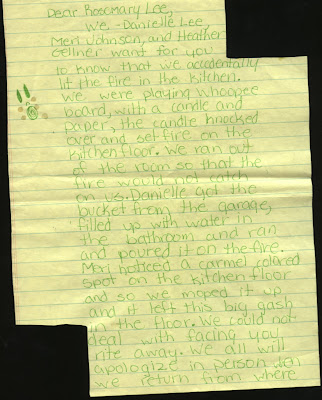 Dear Rosemary Lee,
We - Danielle Lee,
Meri Johnson, and Heather
Gellner want for you
to know that we accedentally
lit the fire in the kitchen.
We were playing whoopee
board, with a candle and
paper, the candle knocked
over and set fire on the
kitchen floor. We ran out
of the room so that the
fire would not catch
on us. Danielle got the
bucket from the garage,
filled up with water in
the bathroom and ran
and poured it on the fire.
Meri noticed a carmel colored
spot on the kitchen floor
and so we moped it up
and it left this big gash
in the floor. We could not
deal with facing you
rite away. We all will
apologize in person when
we return from where